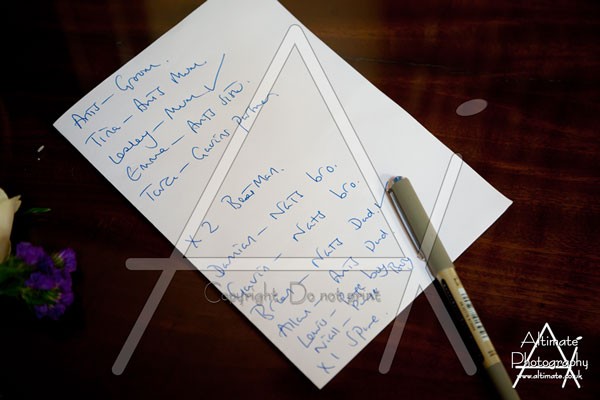 Ants – Groom.
Tina – Ants Mum
Lesley – Mum ✓
Emma – Ants Sis.
Tara – Gavins partner.
x 2 Best Man.
Damian – Nats bro.
Gavin – Nats bro.
Brian – Nats Dad ✓
Allan – Ants Dad
Lewis – page boy
Niall – Page Boy
x 1 Spare.
Copyright - Do not print
Altimate
Photography
www.altimate.co.uk